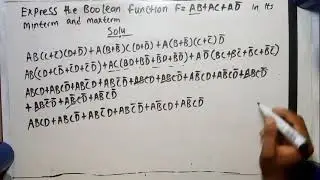 Express the Boolean function F= AB+AC+AD̅ in its
minterm and maxterm
Solu
AB(C+C̅)(D+D̅) + A(B+B̅)C(D+D̅) + A(B+B̅)(C+C̅)D̅
AB(CD+CD̅+C̅D+C̅D̅)+AC(BD+BD̅+B̅D+B̅D̅)+AD̅(BC+BC̅+B̅C+B̅C̅)
ABCD+ABCD̅+ABC̅D+ABC̅D̅+ABCD+ABCD̅+AB̅CD+AB̅CD̅+ABCD̅
+ABC̅D̅+AB̅CD̅+AB̅C̅D̅
ABCD+ABCD̅+ABC̅D+ABC̅D̅+AB̅CD+AB̅CD̅